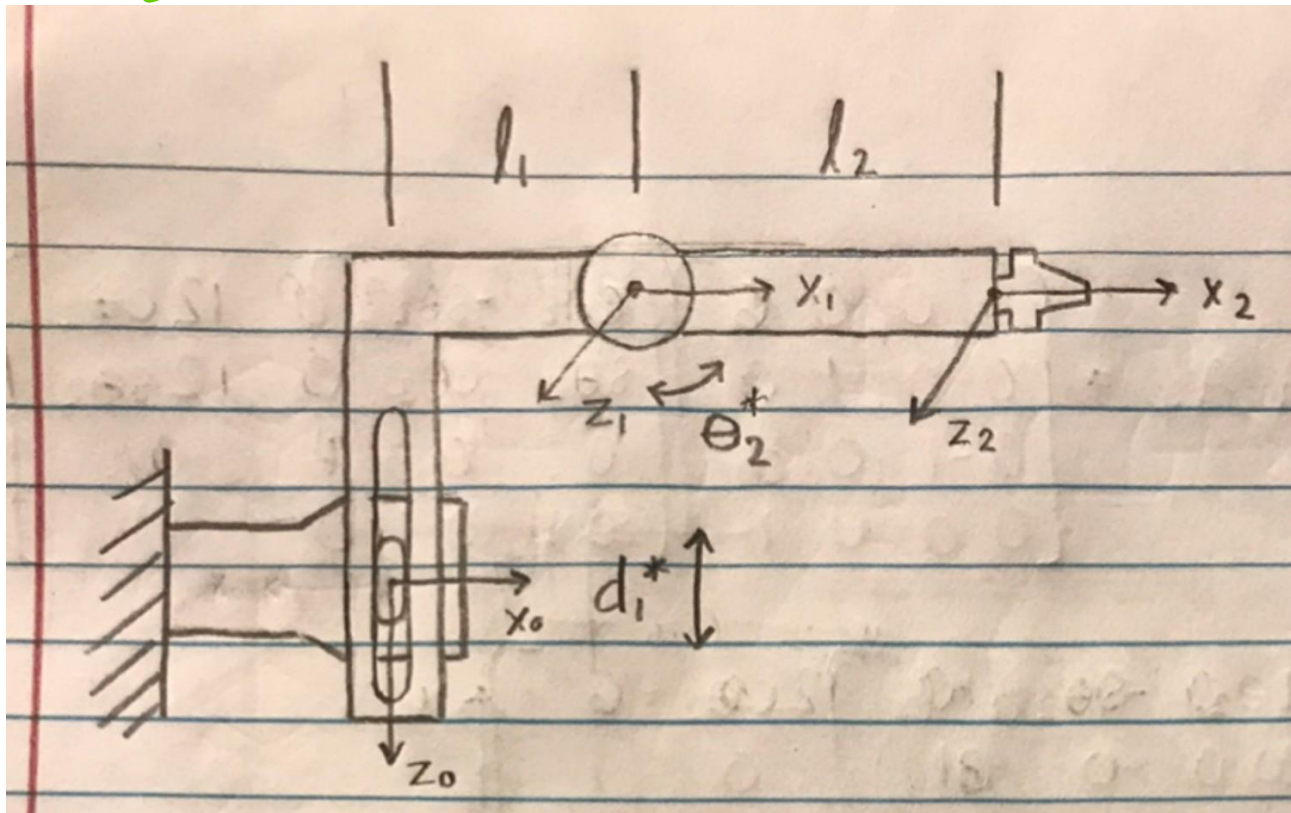 l₁ l₂
x₁ x₂
z₁ θ₂* z₂
d₁*
x₀
z₀